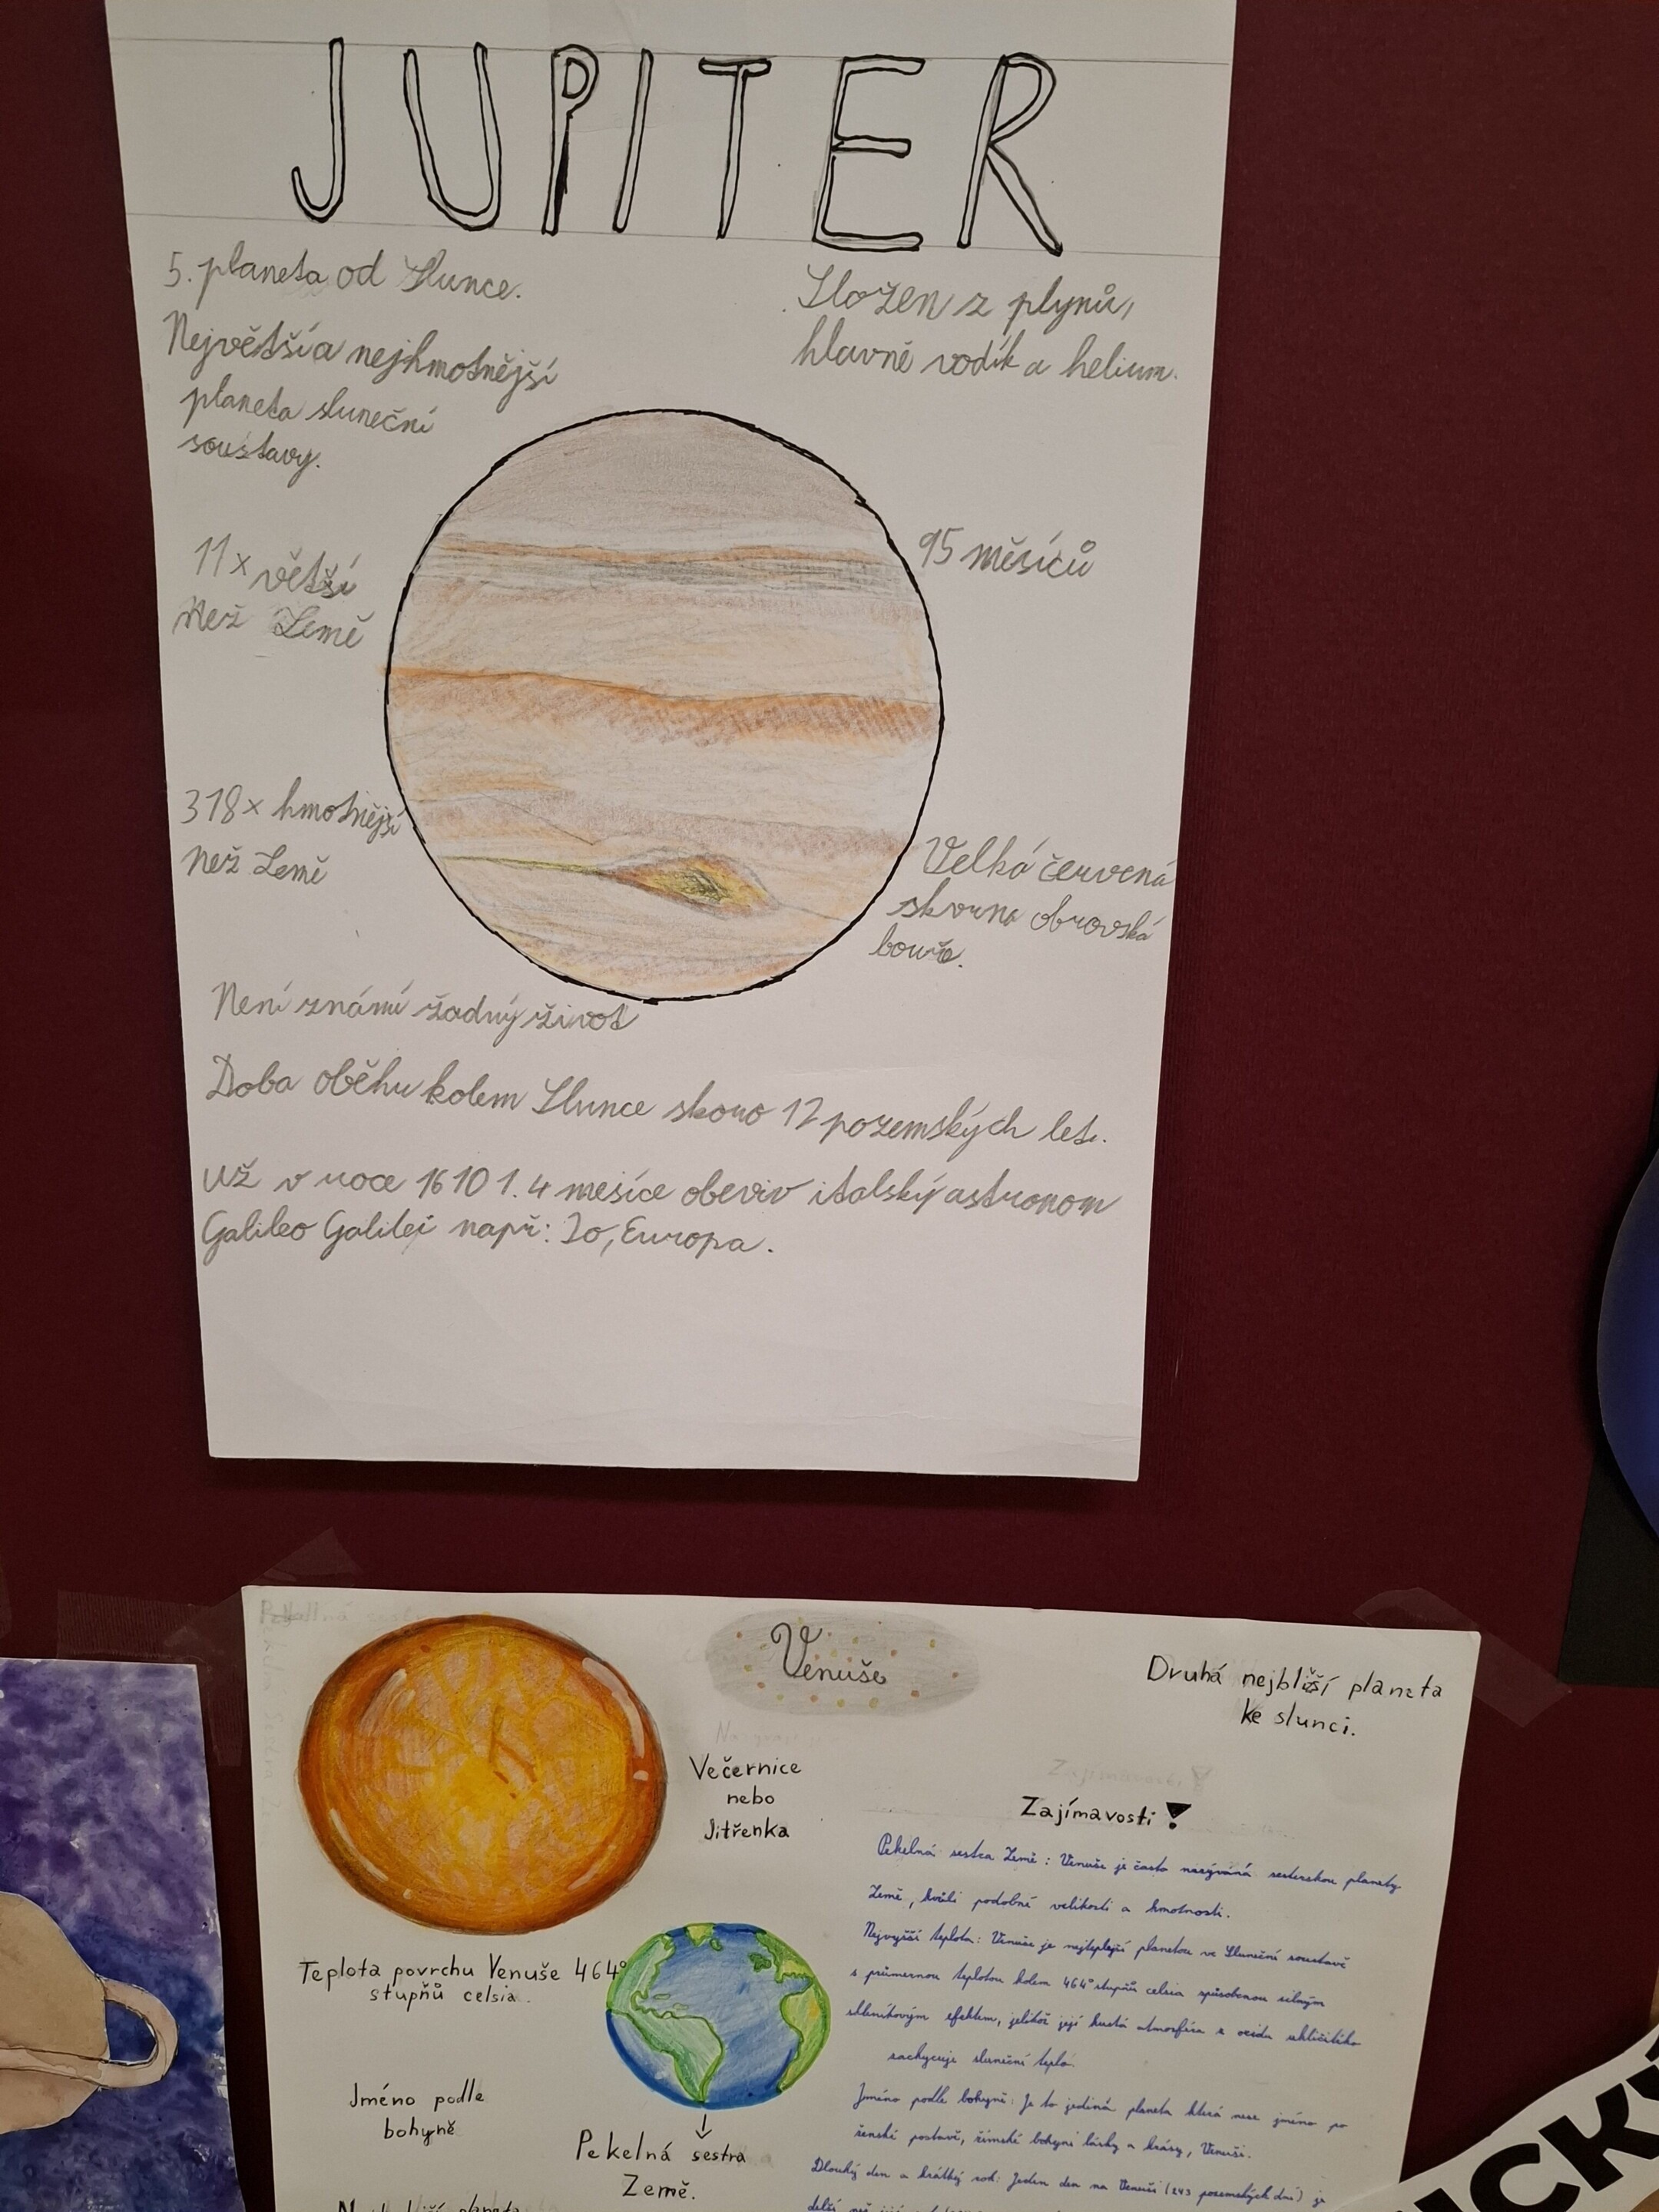 JUPITER
5. planeta od Slunce.
Největší a nejhmotnější
planeta sluneční
soustavy.
Složen z plynů,
hlavně vodík a helium.
11x větší
než Země
95 měsíců
318x hmotnější
než Země
Velká červená
skvrna obrovská
bouře.
Není známí žadný život
Doba oběhu kolem Slunce skoro 12 pozemských let.
Už v roce 1610 1. 4 mesíce obeviv italský astronom
Galileo Galilei např: Io, Europa.
Venuše
Druhá nejbližší planeta
ke slunci.
Večernice
nebo
Jitřenka
Teplota povrchu Venuše 464°
stupňů celsia.
Jméno podle
bohyně
Pekelná sestra
Země.
Zajímavosti!
Pekelná sestra Země: Venuše je často nazývána sesterskou planety
Země, kvůli podobné velikosti a hmotnosti.
Nejvyšší teplota: Venuše je nejteplejší planetou ve Sluneční soustavě
s průmernou teplotou kolem 464° stupňů celsia způsobenou silným
skleníkovým efektem, jelikož její hustá atmosféra z oxidu uhličitého
zachycuje sluneční teplo.
Jméno podle bohyně: Je to jediná planeta která nese jméno po
ženské postavě, římské bohyni lásky a krásy, Venuši.
Dlouhý den a krátký rok: Jeden den na Venuši (243 pozemských dní) je
delší než její
planeta
ICKÝ